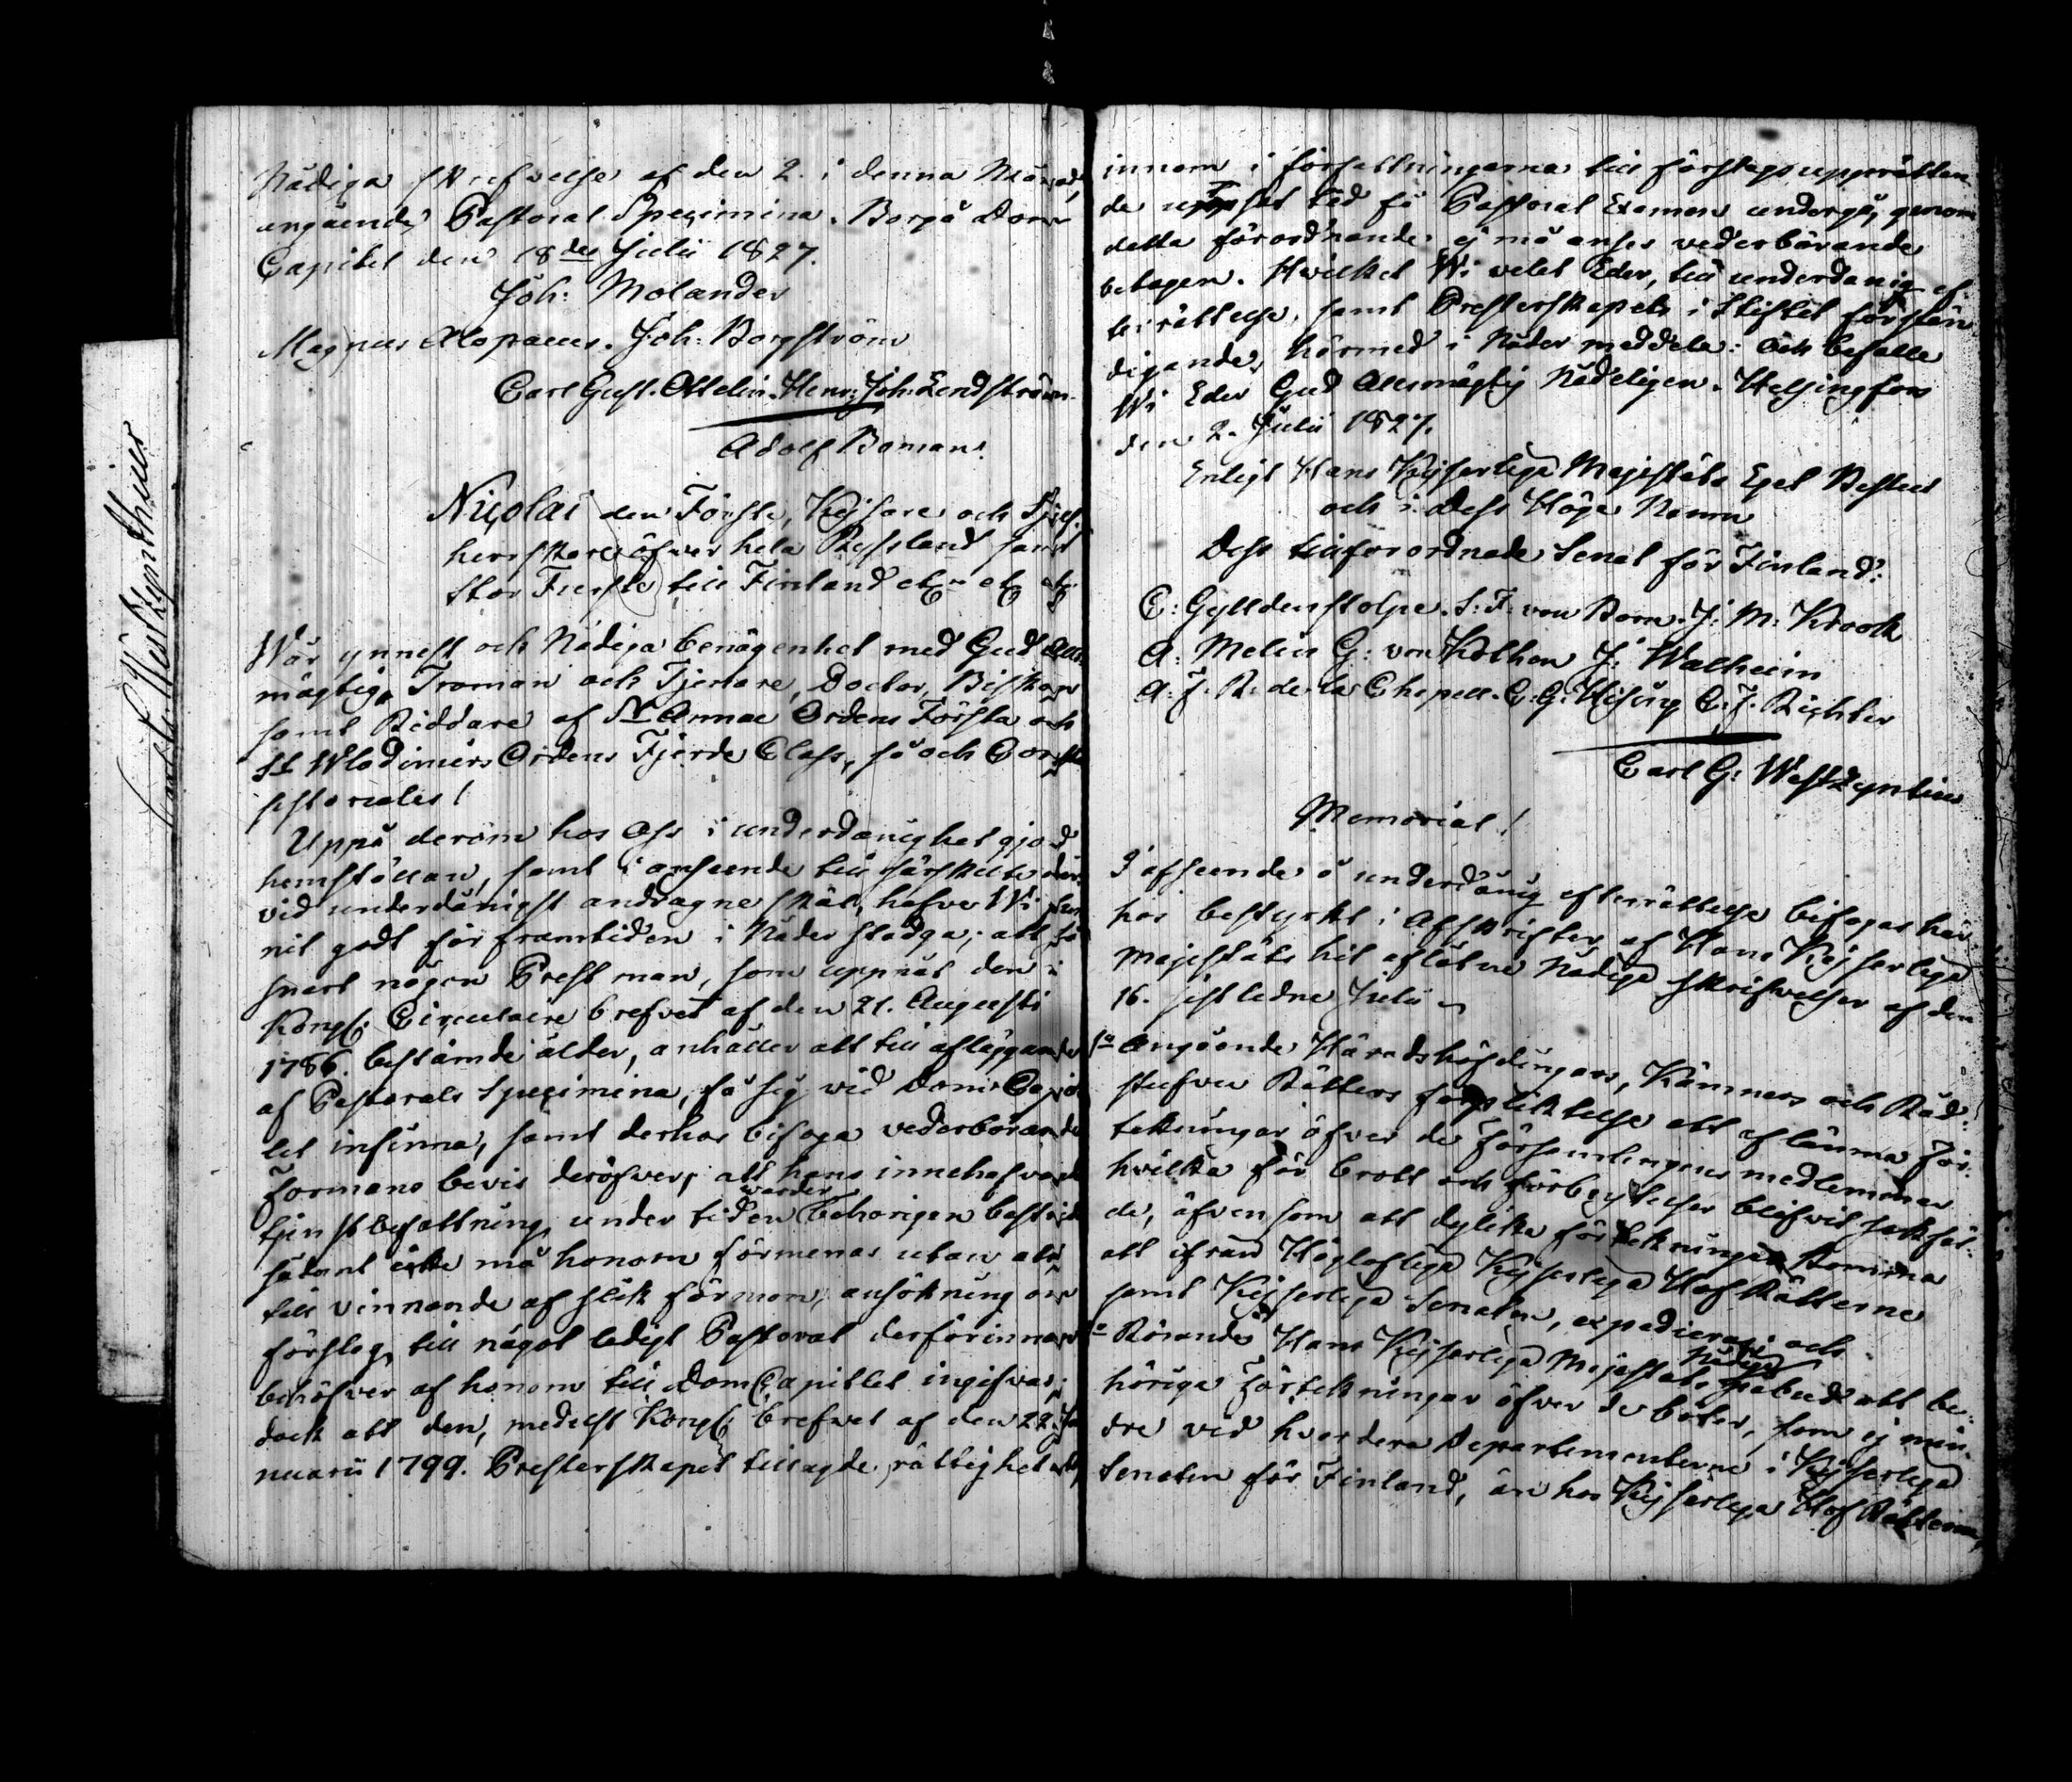 Nådiga skrifvelse af den 2. i denna Månad,
angående Pastoral Specimina. Borgå Dom
Capitel den 18des Julii 1827.
Joh: Molander
Magnus Alopaeus. Joh: Borgström
Carl Gust. Ottelin. Henr: Joh: Lindström.
Adolf Boman.
Nicolai den Förste, Kejsare och Sjelf-
herrskare öfwer hela Ryssland samt
Stor Furste till Finland etc etc etc
Wår ynnest och Nådiga benägenhet med Gud Alls-
mägtig, Troman och Tjenare, Doctor, Biskop
samt Riddare af St Annae Ordens Första och
St Wladimirs Ordens Fjerde Class, så och Consi-
storiales!
Uppå derom hos Oss i underdånighet gjord
hemställan, samt i anseende till särskilte der-
vid underdånigst andragne skäl, hafve Wi fun-
nit godt för framtiden i Nåder stadga; att så
snart någon Prest man, som uppnåt den i
Kongl: Circulaire brefvet af den 21. Augusti
1786. bestämde ålder, anhåller att till afläggande
af Pastorals Specimina, få sig wid Dom Capit-
let infinna, samt derhos bifoga vederbörande
Formans bevis deröfwer, att hans innehafvande
tjenst befattning under tiden warder behörigen bestridt
sådant icke må honom förmenas utan att
till vinnande af slik förmon, ansökning om
förslag till något ledigt Pastorat derförinnan
behöfver af honom till DomCapitlet ingifwas;
dock att den, medelst Kongl: brefwet af den 22. Ja-
nuarii 1799. Presterskapet tillagde rättighet att,
innom i författningarna till förslags upprättan-
de utsatt tid få Pastoral Examen undergå, genom
detta förordnande ej må anses vederbörande
betagen. Hvilket Wi velat Eder, till underdånig ef-
terrättelse, samt Presterskapets i Stiftet förstän-
digande, härmed i Nåder meddela: Och befalle
Wi Eder Gud Allsmägtig Nådeligen. Helsingfors
den 2. Julii 1827.
Enligt Hans Kejserliga Majestäts Eget Beslut
och i Dess Höga Namn
Dess tillförordnade Senat för Finland:
C: Gyldenstolpe. S: F: von Born. J: M: Krook
A: Melin G: von Kothen J: Walheim
A: J. R: de la Chapell. C. G: Hising C: J. Richter
Carl G: WestZynthius
Memorial!
I afseende å underdånig efterrättelse bifogas här-
hos bestyrkt i Afskrifter af Hans Kejserliga
Majestäts hit aflåtne Nådiga skrifvelser af den
16. sistledne Julii
1o Angående Häradshöfdingars, Kämners och Råd-
stufvu Rätters förpliktelse att aflämna För-
tekningar öfver de Församlingens medlemmar
hvilka för brott och förbrytelser blifvit sakfäl-
de, äfven som att dylika förtekningar komma
att ifrån Högloflige Kejserliga Hof Rätterne
samt Kejserliga Senaten, expedieras; och
2o Rörande Hans Kejserliga Majestäts Nådiga påbud att be-
höriga Förtekningar öfver de böter, som ej min-
dre vid hvardera Departementerne i Kejserliga
Senaten för Finland, än hos Kejserliga Hof Rätterne,